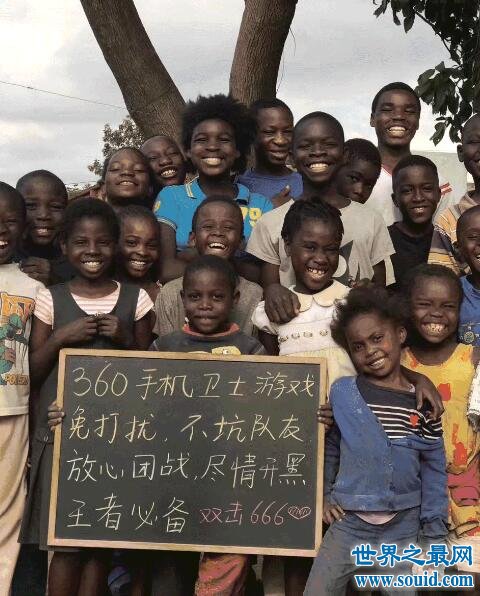 360手机卫士游戏
免打扰，不坑队友
放心团战，尽情开黑
王者必备 双击666
世界之最网
www.souid.com